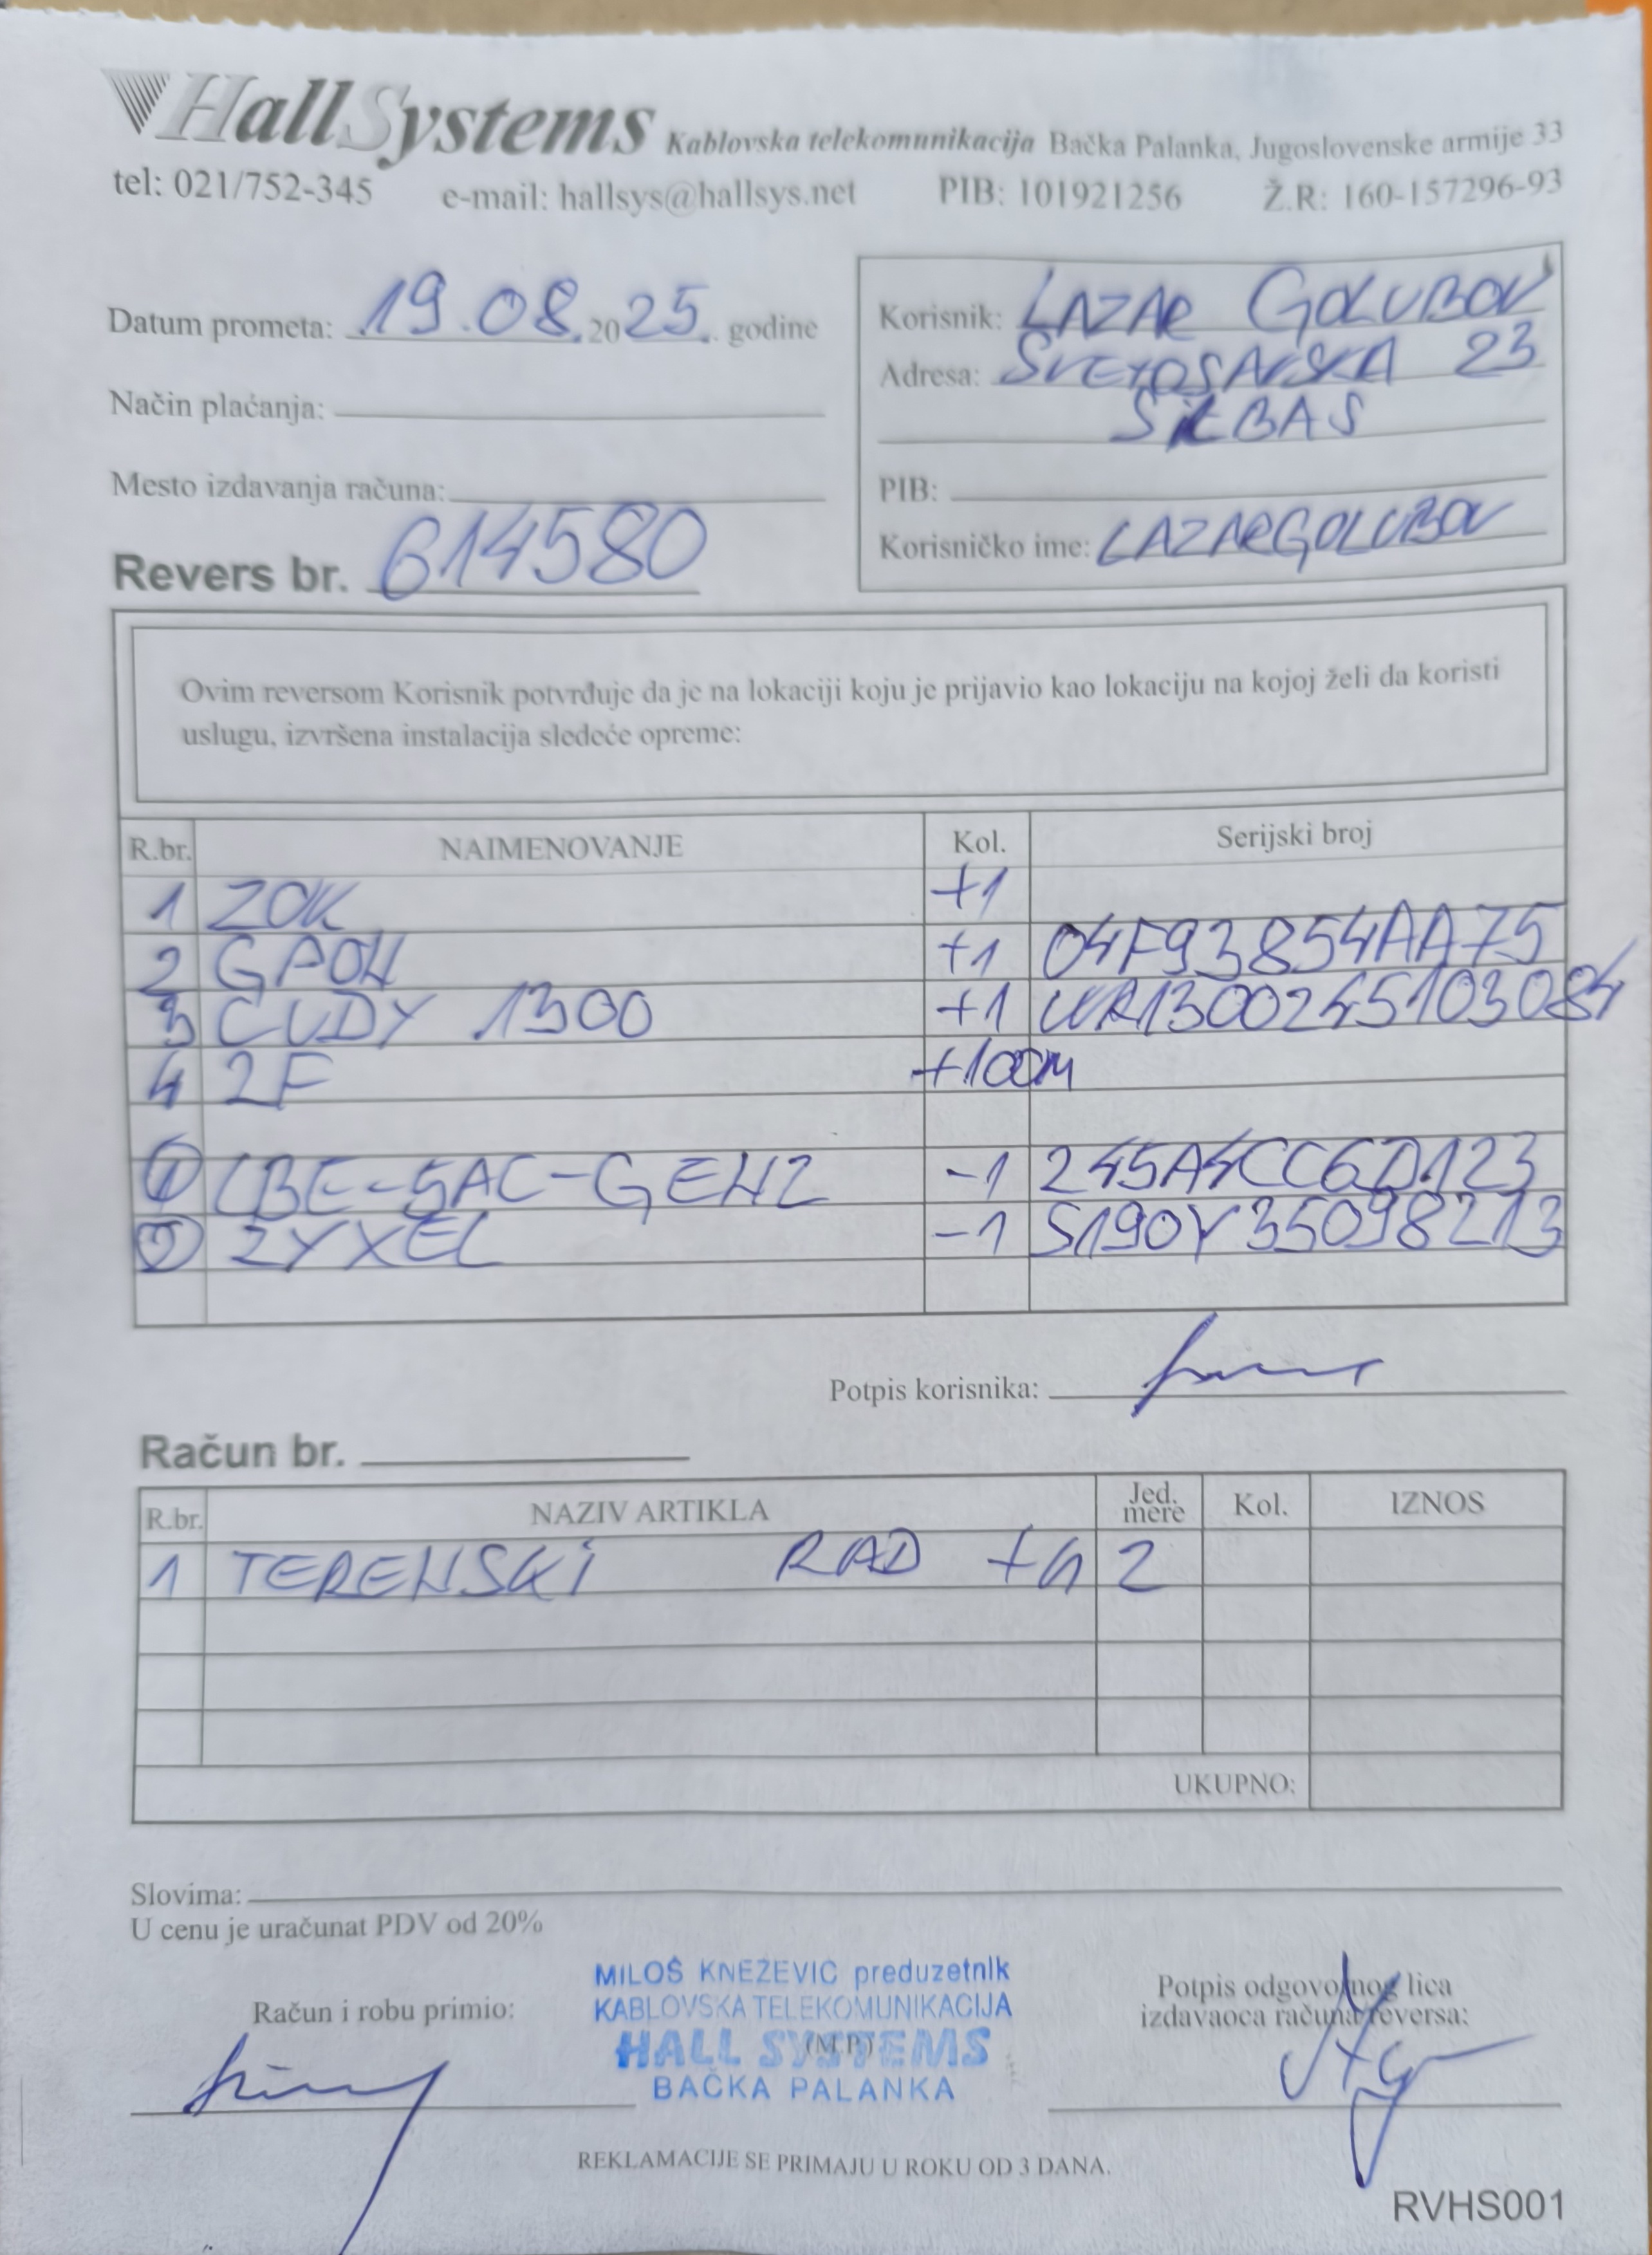 HallSystems Kablovska telekomunikacija Bačka Palanka, Jugoslovenske armije 33
tel: 021/752-345 e-mail: hallsys@hallsys.net PIB: 101921256 Ž.R: 160-157296-93
Datum prometa: 19.08.2025. godine
Način plaćanja:
Mesto izdavanja računa:
Revers br. 614580
Korisnik: LAZAR GOLUBOV
Adresa: SVETOSAVSKA 23
SILBAŠ
PIB:
Korisničko ime: LAZARGOLUBOV
Ovim reversom Korisnik potvrđuje da je na lokaciji koju je prijavio kao lokaciju na kojoj želi da koristi
uslugu, izvršena instalacija sledeće opreme:
R.br. NAIMENOVANJE Kol. Serijski broj
1 ZOK +1
2 GPON +1 04F93854AA75
3 CUDY 1300 +1 WR1300245103084
4 2F +100M
1 LBE-5AC-GEN2 -1 245A4CC6D123
2 ZYXEL -1 S190Y35098213
Potpis korisnika:
Račun br.
R.br. NAZIV ARTIKLA Jed. mere Kol. IZNOS
1 TERENSKI RAD +h 2
UKUPNO:
Slovima:
U cenu je uračunat PDV od 20%
Račun i robu primio:
MILOŠ KNEŽEVIĆ preduzetnik
KABLOVSKA TELEKOMUNIKACIJA
HALL SYSTEMS
(M.P.)
BAČKA PALANKA
Potpis odgovornog lica
izdavaoca računa/reversa:
REKLAMACIJE SE PRIMAJU U ROKU OD 3 DANA.
RVHS001